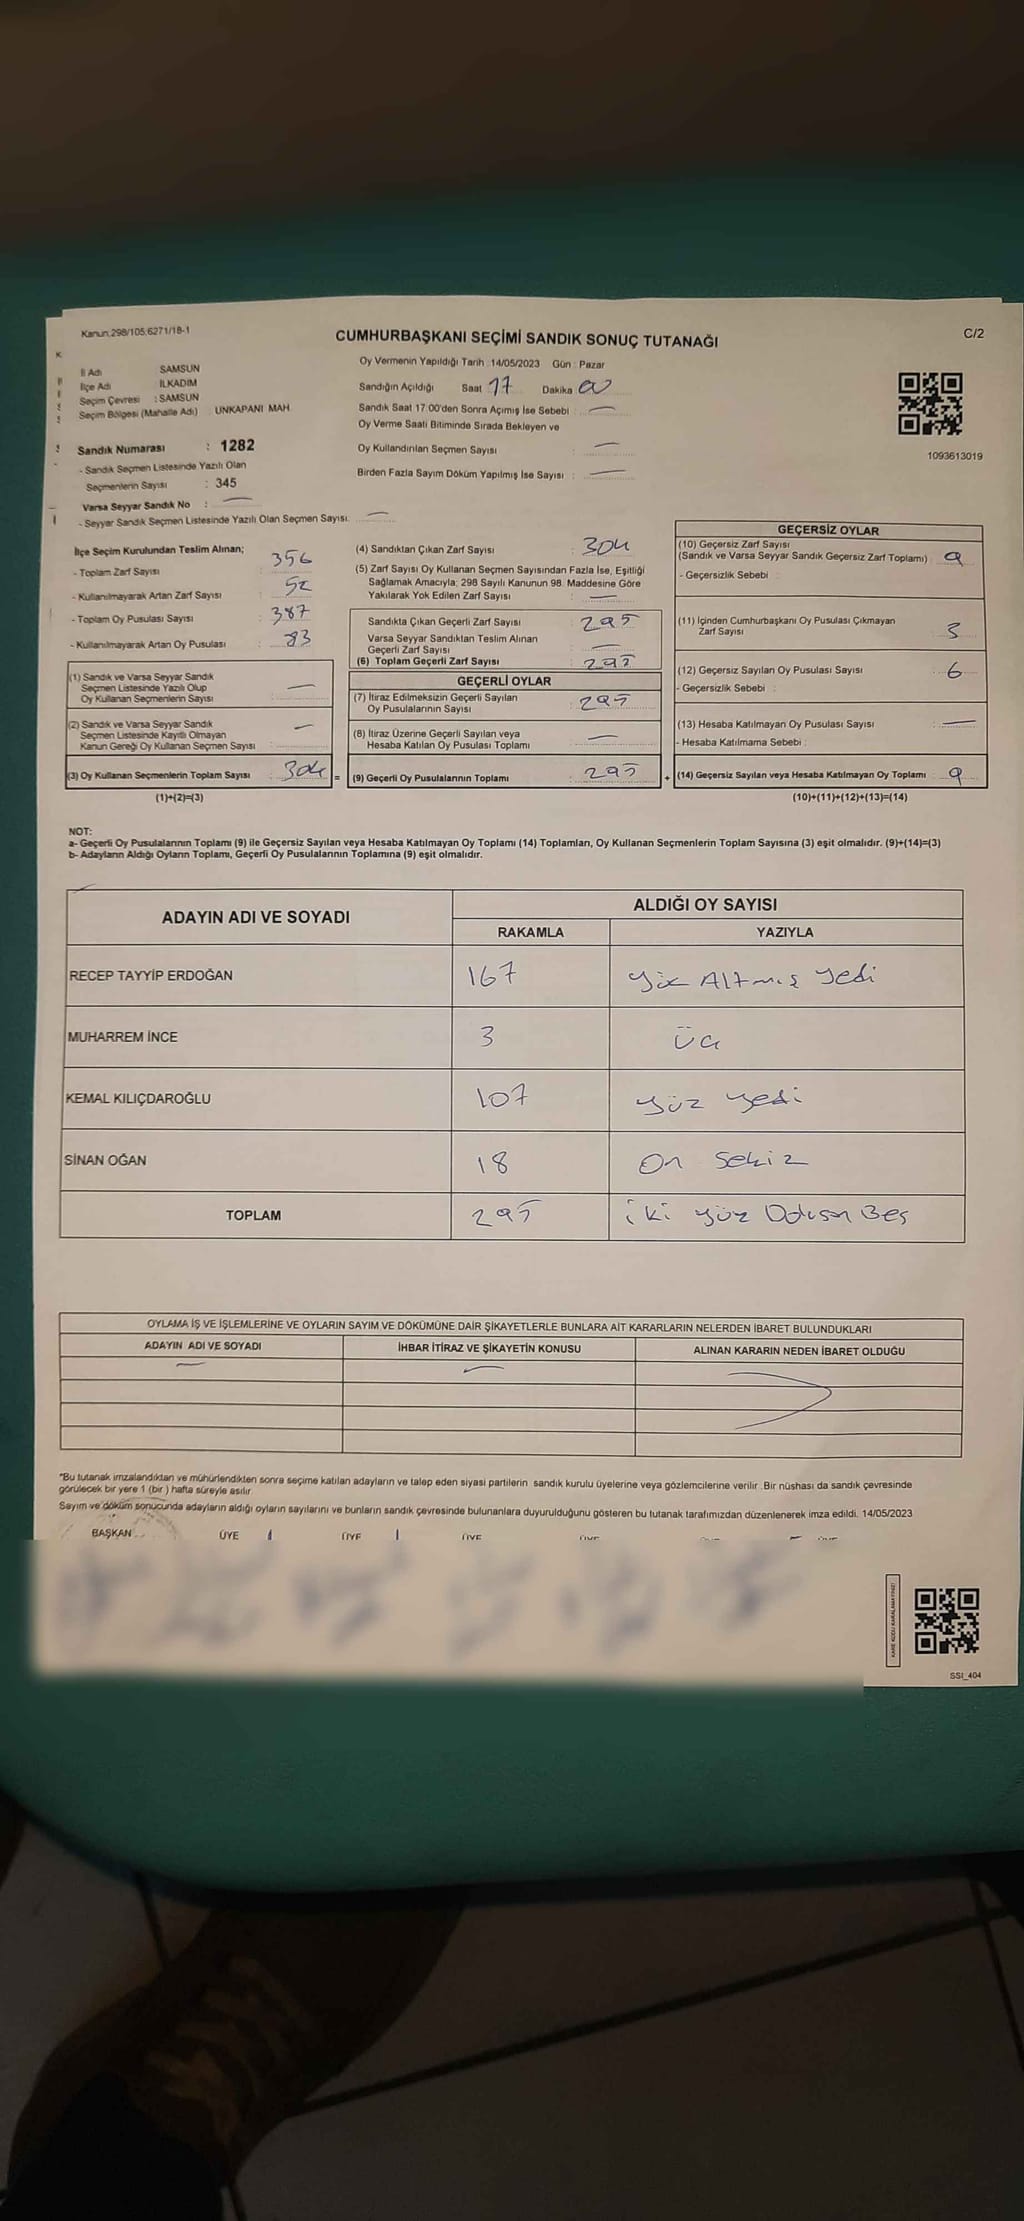 Kanun:298/105,6271/18-1
C/2
CUMHURBAŞKANI SEÇİMİ SANDIK SONUÇ TUTANAĞI
İl Adı SAMSUN
İlçe Adı İLKADIM
Seçim Çevresi : SAMSUN
Seçim Bölgesi (Mahalle Adı) UNKAPANI MAH.
Sandık Numarası : 1282
- Sandık Seçmen Listesinde Yazılı Olan
Seçmenlerin Sayısı : 345
Varsa Seyyar Sandık No : —
- Seyyar Sandık Seçmen Listesinde Yazılı Olan Seçmen Sayısı: —
Oy Vermenin Yapıldığı Tarih :14/05/2023 Gün : Pazar
Sandığın Açıldığı Saat 17 Dakika 00
Sandık Saat 17:00'den Sonra Açımış İse Sebebi : —
Oy Verme Saati Bitiminde Sırada Bekleyen ve
Oy Kullandırılan Seçmen Sayısı : —
Birden Fazla Sayım Döküm Yapılmış İse Sayısı : —
1093613019
İlçe Seçim Kurulundan Teslim Alınan;
- Toplam Zarf Sayısı : 356
- Kullanılmayarak Artan Zarf Sayısı : 52
- Toplam Oy Pusulası Sayısı : 387
- Kullanılmayarak Artan Oy Pusulası : 83
(1) Sandık ve Varsa Seyyar Sandık
Seçmen Listesinde Yazılı Olup
Oy Kullanan Seçmenlerin Sayısı : —
(2) Sandık ve Varsa Seyyar Sandık
Seçmen Listesinde Kayıtlı Olmayan
Kanun Gereği Oy Kullanan Seçmen Sayısı : —
(3) Oy Kullanan Seçmenlerin Toplam Sayısı : 304 =
(1)+(2)=(3)
(4) Sandıktan Çıkan Zarf Sayısı : 304
(5) Zarf Sayısı Oy Kullanan Seçmen Sayısından Fazla İse, Eşitliği
Sağlamak Amacıyla; 298 Sayılı Kanunun 98. Maddesine Göre
Yakılarak Yok Edilen Zarf Sayısı : —
Sandıkta Çıkan Geçerli Zarf Sayısı : 295
Varsa Seyyar Sandıktan Teslim Alınan
Geçerli Zarf Sayısı : —
(6) Toplam Geçerli Zarf Sayısı : 295
GEÇERLİ OYLAR
(7) İtiraz Edilmeksizin Geçerli Sayılan
Oy Pusulalarının Sayısı : 295
(8) İtiraz Üzerine Geçerli Sayılan veya
Hesaba Katılan Oy Pusulası Toplamı : —
(9) Geçerli Oy Pusulalarının Toplamı : 295 +
GEÇERSİZ OYLAR
(10) Geçersiz Zarf Sayısı
(Sandık ve Varsa Seyyar Sandık Geçersiz Zarf Toplamı) :
- Geçersizlik Sebebi :
(11) İçinden Cumhurbaşkanı Oy Pusulası Çıkmayan
Zarf Sayısı : 3
(12) Geçersiz Sayılan Oy Pusulası Sayısı : 6
- Geçersizlik Sebebi :
(13) Hesaba Katılmayan Oy Pusulası Sayısı : —
- Hesaba Katılmama Sebebi :
(14) Geçersiz Sayılan veya Hesaba Katılmayan Oy Toplamı : 9
(10)+(11)+(12)+(13)=(14)
NOT:
a- Geçerli Oy Pusulalarının Toplamı (9) ile Geçersiz Sayılan veya Hesaba Katılmayan Oy Toplamı (14) Toplamları, Oy Kullanan Seçmenlerin Toplam Sayısına (3) eşit olmalıdır. (9)+(14)=(3)
b- Adayların Aldığı Oyların Toplamı, Geçerli Oy Pusulalarının Toplamına (9) eşit olmalıdır.
ADAYIN ADI VE SOYADI ALDIĞI OY SAYISI
RAKAMLA YAZIYLA
RECEP TAYYİP ERDOĞAN 167 Yüz Altmış Yedi
MUHARREM İNCE 3 Üç
KEMAL KILIÇDAROĞLU 107 Yüz Yedi
SİNAN OĞAN 18 On Sekiz
TOPLAM 295 İki Yüz Doksan Beş
OYLAMA İŞ VE İŞLEMLERİNE VE OYLARIN SAYIM VE DÖKÜMÜNE DAİR ŞİKAYETLERLE BUNLARA AİT KARARLARIN NELERDEN İBARET BULUNDUKLARI
ADAYIN ADI VE SOYADI İHBAR İTİRAZ VE ŞİKAYETİN KONUSU ALINAN KARARIN NEDEN İBARET OLDUĞU
*Bu tutanak imzalandıktan ve mühürlendikten sonra seçime katılan adayların ve talep eden siyasi partilerin sandık kurulu üyelerine veya gözlemcilerine verilir. Bir nüshası da sandık çevresinde
görülecek bir yere 1 (bir ) hafta süreyle asılır.
Sayım ve döküm sonucunda adayların aldığı oyların sayılarını ve bunların sandık çevresinde bulunanlara duyurulduğunu gösteren bu tutanak tarafımızdan düzenlenerek imza edildi. 14/05/2023
BAŞKAN ÜYE ÜYE ÜYE
KARE KODU KARALAMAYINIZ!
SSI_404